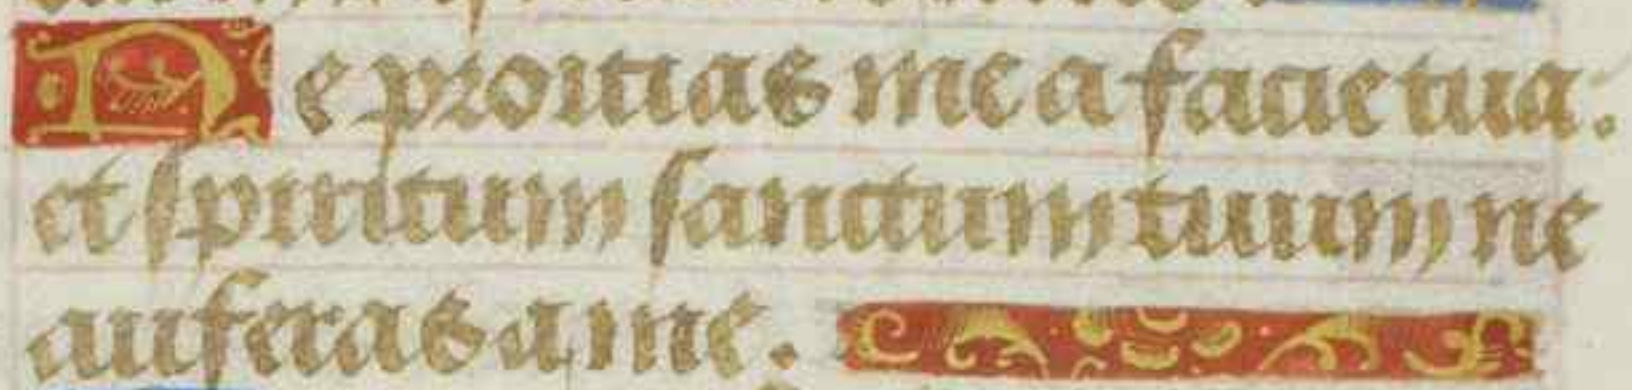 Ne proitias me a facie tua.
et spiritum sanctum tuum ne
auferas a me.